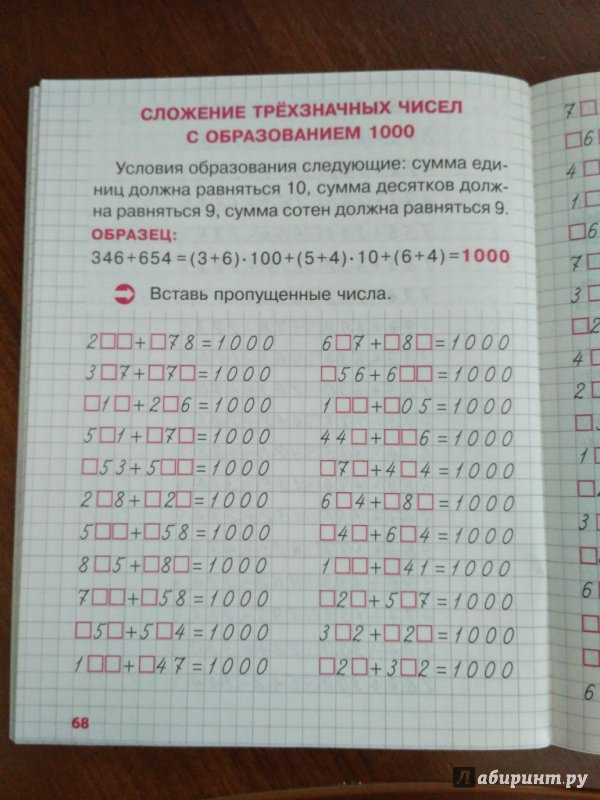 СЛОЖЕНИЕ ТРЁХЗНАЧНЫХ ЧИСЕЛ
С ОБРАЗОВАНИЕМ 1000
Условия образования следующие: сумма еди-
ниц должна равняться 10, сумма десятков долж-
на равняться 9, сумма сотен должна равняться 9.
ОБРАЗЕЦ:
346+654=(3+6)·100+(5+4)·10+(6+4)=1000
Вставь пропущенные числа.
2□□+□78=1000
3□7+□7□=1000
□1□+2□6=1000
5□1+□7□=1000
□53+5□□=1000
2□8+□2□=1000
5□□+□58=1000
8□5+□8□=1000
7□□+□58=1000
□5□+5□4=1000
1□□+□47=1000
6□7+□8□=1000
□56+6□□=1000
1□□+□05=1000
44□+□□6=1000
□7□+4□4=1000
6□4+□8□=1000
□4□+6□4=1000
1□□+□41=1000
□2□+5□7=1000
3□2+□2□=1000
□2□+3□2=1000
68
7□
□6
4□
1□
□6
7□
3□
□2
4□
2□
□5
1□
□2
3□
□5
6□
6
лабиринт.ру